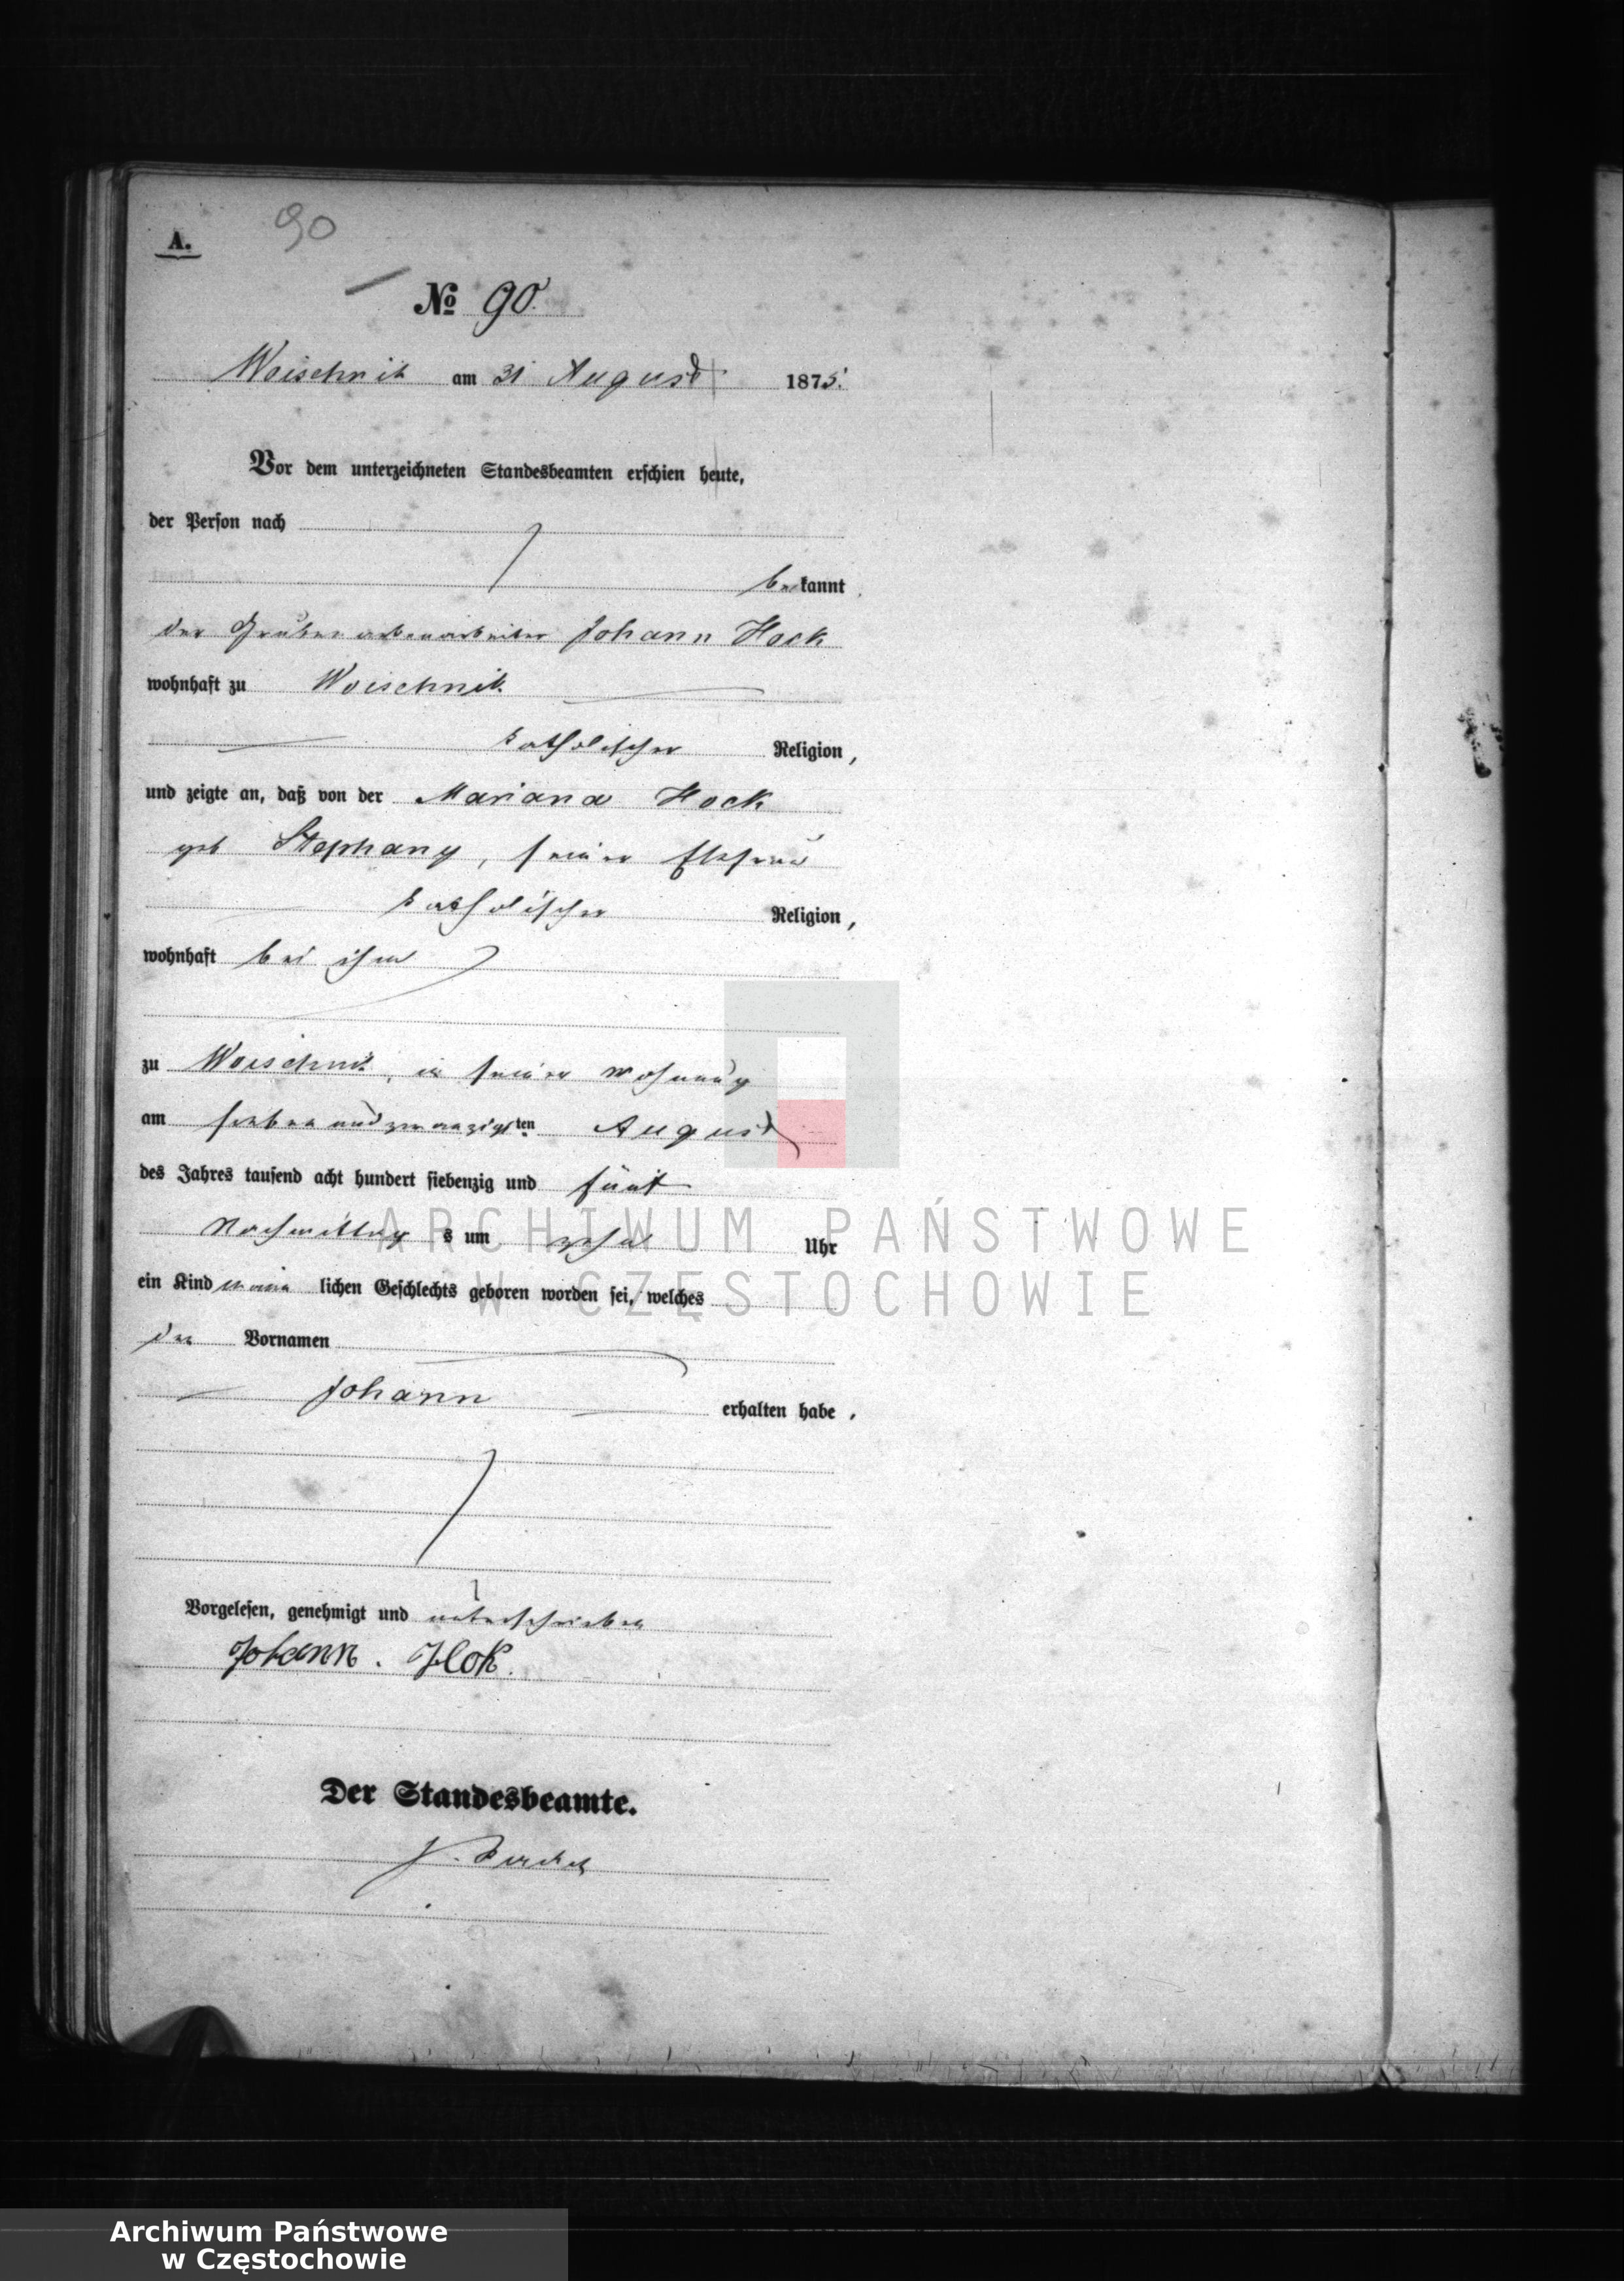 90
A.
№ 90.
Woischnik am 31 August 1875.
Vor dem unterzeichneten Standesbeamten erschien heute,
der Person nach
bekannt
der Johann Hock
wohnhaft zu Woischnik
katholischer Religion,
und zeigte an, daß von der Mariana Hock
geb Stephany, seiner Ehefrau
katholischer Religion,
wohnhaft bei ihm
zu Woischnik, in seiner Wohnung
am sieben und zwanzigsten August
des Jahres tausend acht hundert siebenzig und fünf
Nachmittag s um zehn Uhr
ein Kind männ lichen Geschlechts geboren worden sei, welches
den Vornamen
Johann erhalten habe,
Vorgelesen, genehmigt und unterschrieben
Johann. Hok.
Der Standesbeamte.
ARCHIWUM PAŃSTWOWE
W CZĘSTOCHOWIE
Archiwum Państwowe
w Częstochowie